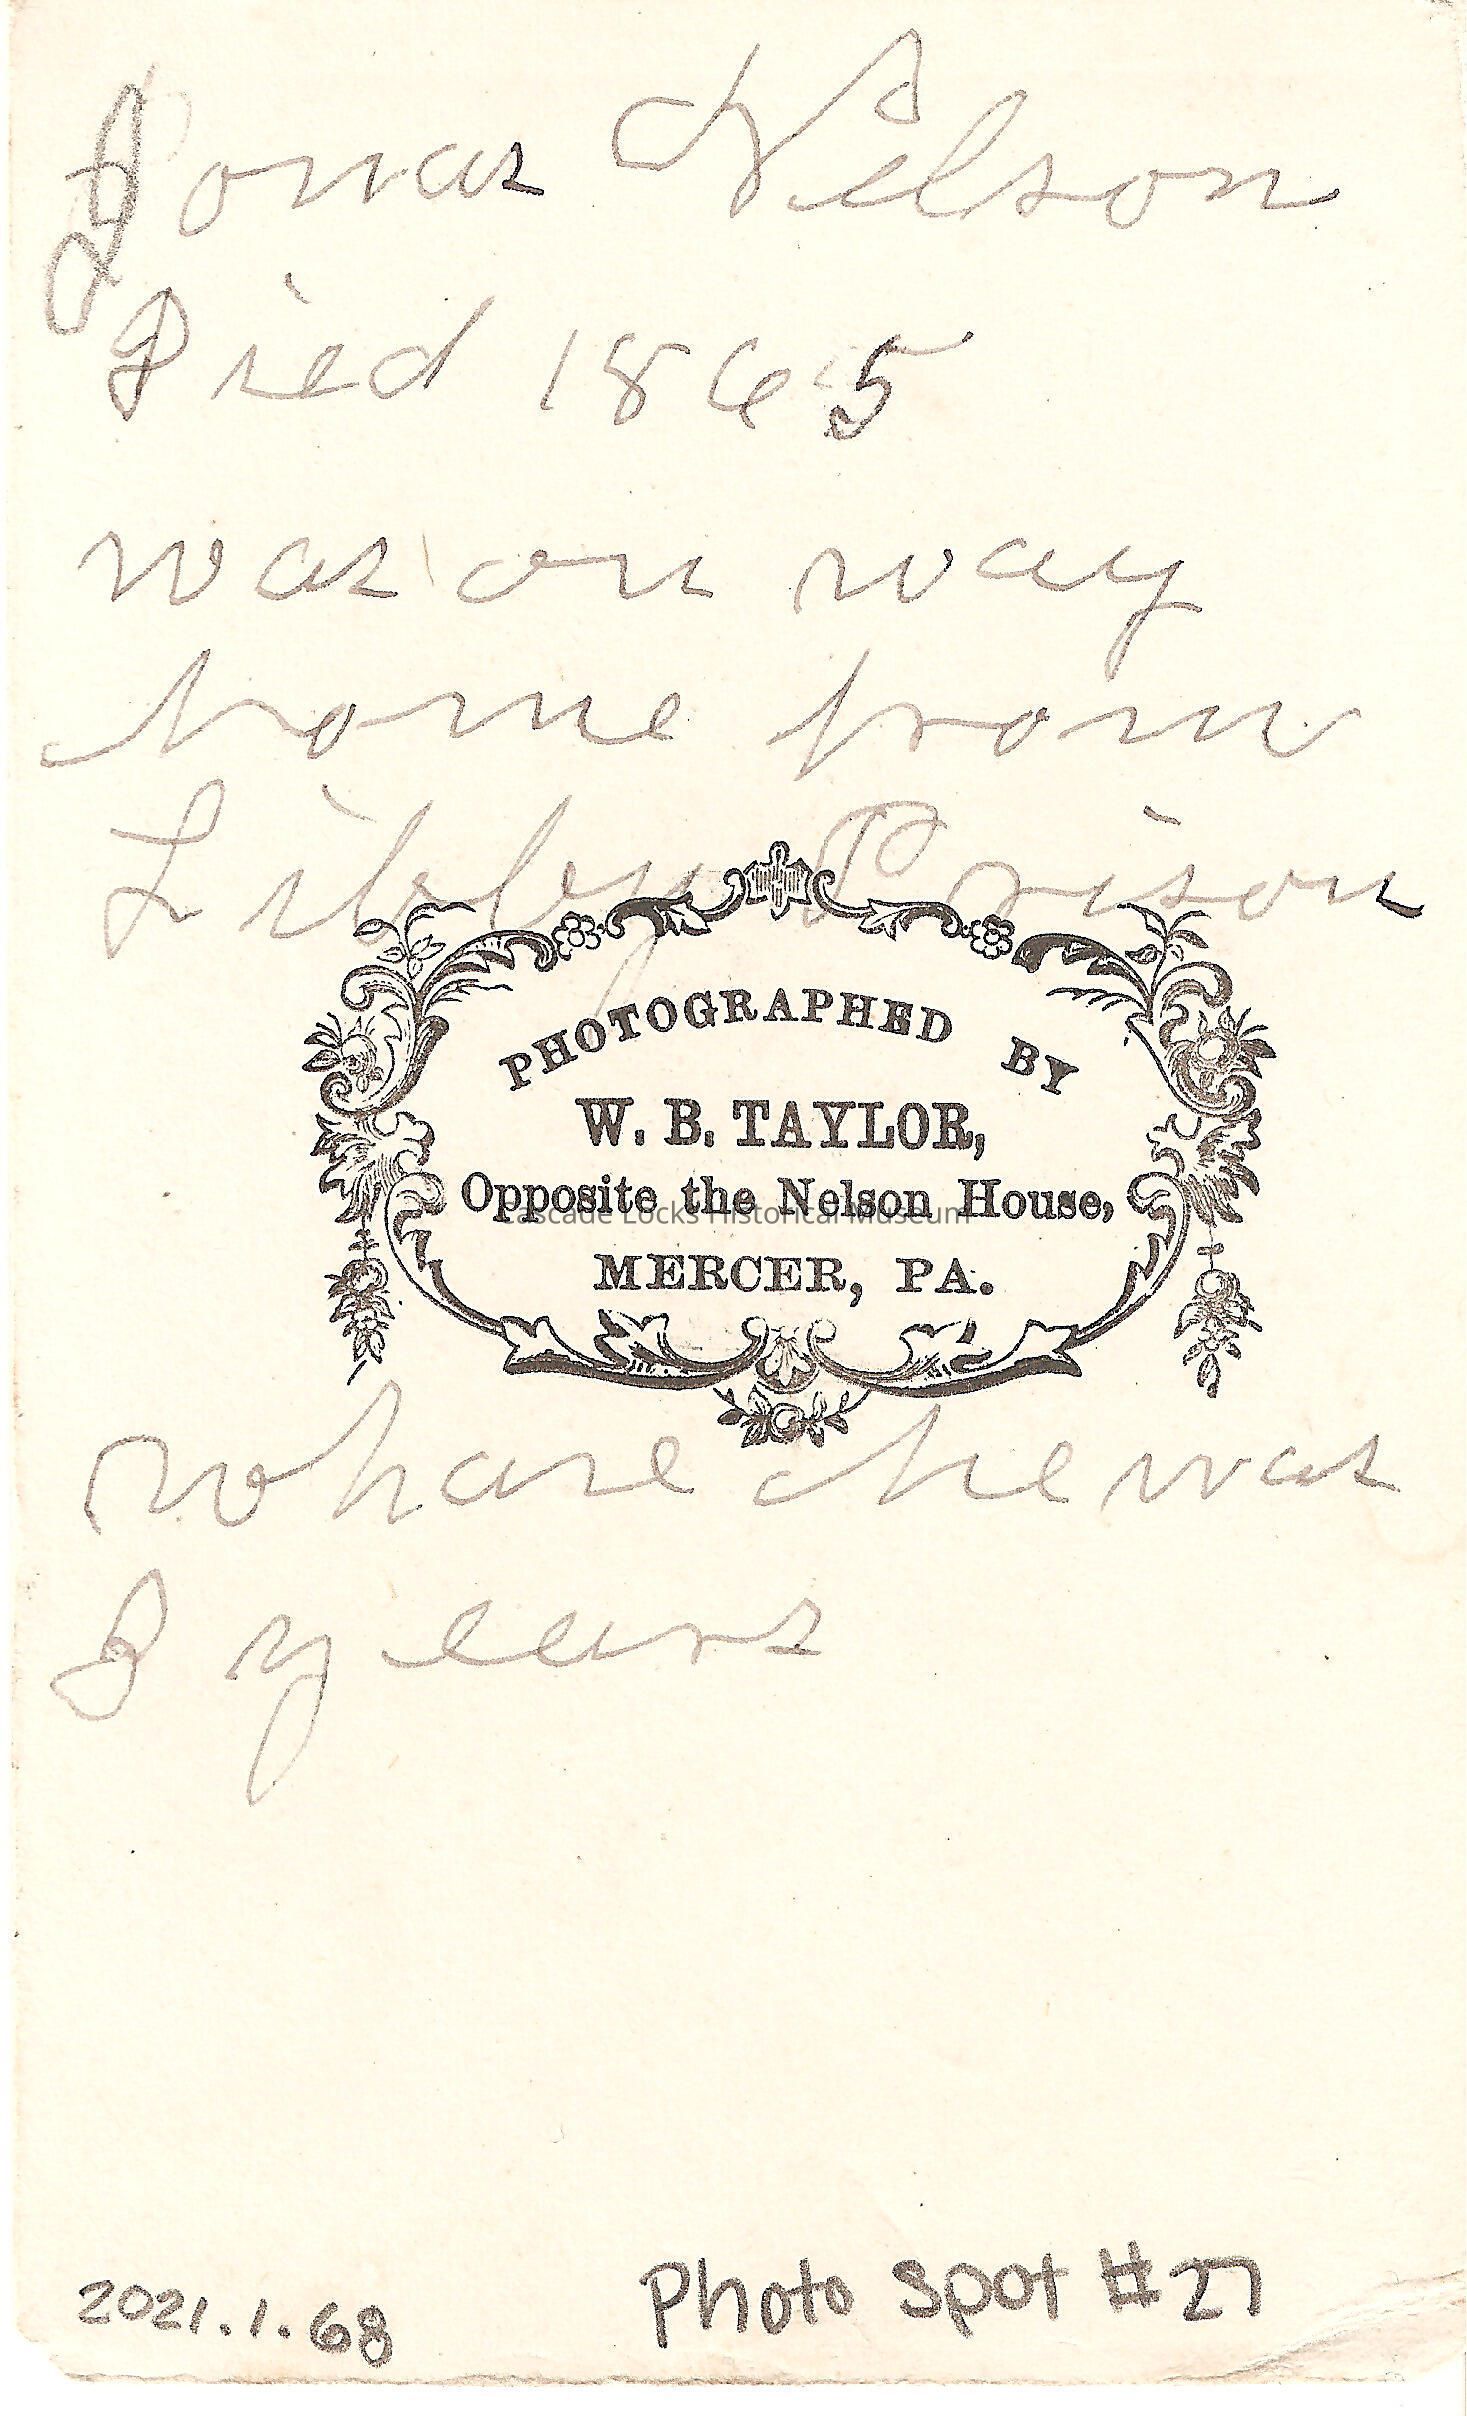 Jonas Nelson
Died 1865
was on way
home from
Libby Prison
PHOTOGRAPHED BY
W. B. TAYLOR,
Opposite the Nelson House,
Cascade Locks Historical Museum
MERCER, PA.
whare he was
years
2021.1.68
Photo Spot #27